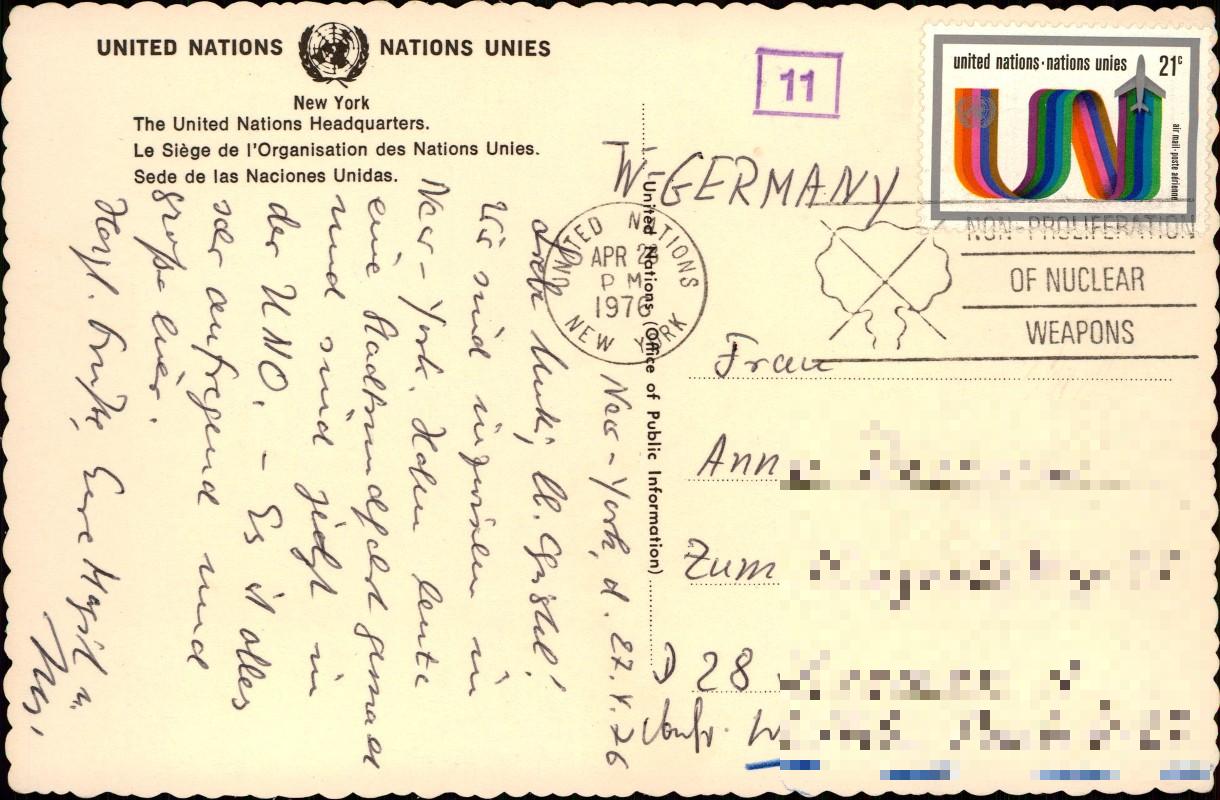 UNITED NATIONS NATIONS UNIES
New York
The United Nations Headquarters.
Le Siège de l'Organisation des Nations Unies.
Sede de las Naciones Unidas.
11
united nations·nations unies 21c
air mail·poste aérienne
UN
UNITED NATIONS
APR
PM
1976
NEW YORK
NON-PROLIFERATION
OF NUCLEAR
WEAPONS
United Nations (Office of Public Information)
W-GERMANY
Frau
Ann
Zum
D 28
New-York, d. 27.4.76
Liebe
Wir sind inzwischen in
New-York. Haben heute
eine Stadtrundfahrt gemacht
und sind jetzt in
der UNO. - Es ist alles
sehr aufregend und
große hier.
Herzl. Grüße, Eure